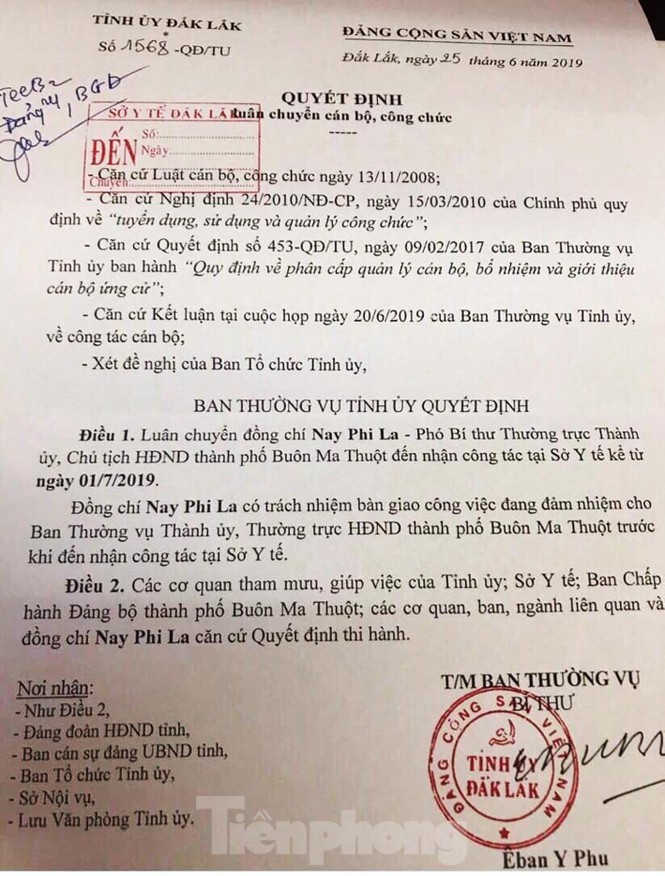 TỈNH ỦY ĐẮK LẮK
*
Số 1568-QĐ/TU
ĐẢNG CỘNG SẢN VIỆT NAM
Đắk Lắk, ngày 25 tháng 6 năm 2019
QUYẾT ĐỊNH
luân chuyển cán bộ, công chức
-----
SỞ Y TẾ ĐẮK LẮK
ĐẾN
Số:
Ngày
Chuyển
- Căn cứ Luật cán bộ, công chức ngày 13/11/2008;
- Căn cứ Nghị định 24/2010/NĐ-CP, ngày 15/03/2010 của Chính phủ quy
định về “tuyển dụng, sử dụng và quản lý công chức”;
- Căn cứ Quyết định số 453-QĐ/TU, ngày 09/02/2017 của Ban Thường vụ
Tỉnh ủy ban hành “Quy định về phân cấp quản lý cán bộ, bổ nhiệm và giới thiệu
cán bộ ứng cử”;
- Căn cứ Kết luận tại cuộc họp ngày 20/6/2019 của Ban Thường vụ Tỉnh ủy,
về công tác cán bộ;
- Xét đề nghị của Ban Tổ chức Tỉnh ủy,
BAN THƯỜNG VỤ TỈNH ỦY QUYẾT ĐỊNH
Điều 1. Luân chuyển đồng chí Nay Phi La - Phó Bí thư Thường trực Thành
ủy, Chủ tịch HĐND thành phố Buôn Ma Thuột đến nhận công tác tại Sở Y tế kể từ
ngày 01/7/2019.
Đồng chí Nay Phi La có trách nhiệm bàn giao công việc đang đảm nhiệm cho
Ban Thường vụ Thành ủy, Thường trực HĐND thành phố Buôn Ma Thuột trước
khi đến nhận công tác tại Sở Y tế.
Điều 2. Các cơ quan tham mưu, giúp việc của Tỉnh ủy; Sở Y tế; Ban Chấp
hành Đảng bộ thành phố Buôn Ma Thuột; các cơ quan, ban, ngành liên quan và
đồng chí Nay Phi La căn cứ Quyết định thi hành.
Nơi nhận:
- Như Điều 2,
- Đảng đoàn HĐND tỉnh,
- Ban cán sự đảng UBND tỉnh,
- Ban Tổ chức Tỉnh ủy,
- Sở Nội vụ,
- Lưu Văn phòng Tỉnh ủy.
T/M BAN THƯỜNG VỤ
BÍ THƯ
ĐẢNG CỘNG SẢN VIỆT NAM
TỈNH ỦY
ĐẮK LẮK
Êban Y Phu
Tiênphong